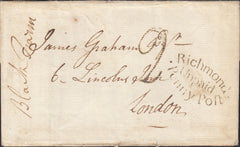 Black Barn
James Graham Esqr
6. Lincolns Inn
London
2
Richmond
Unpaid
Penny Post